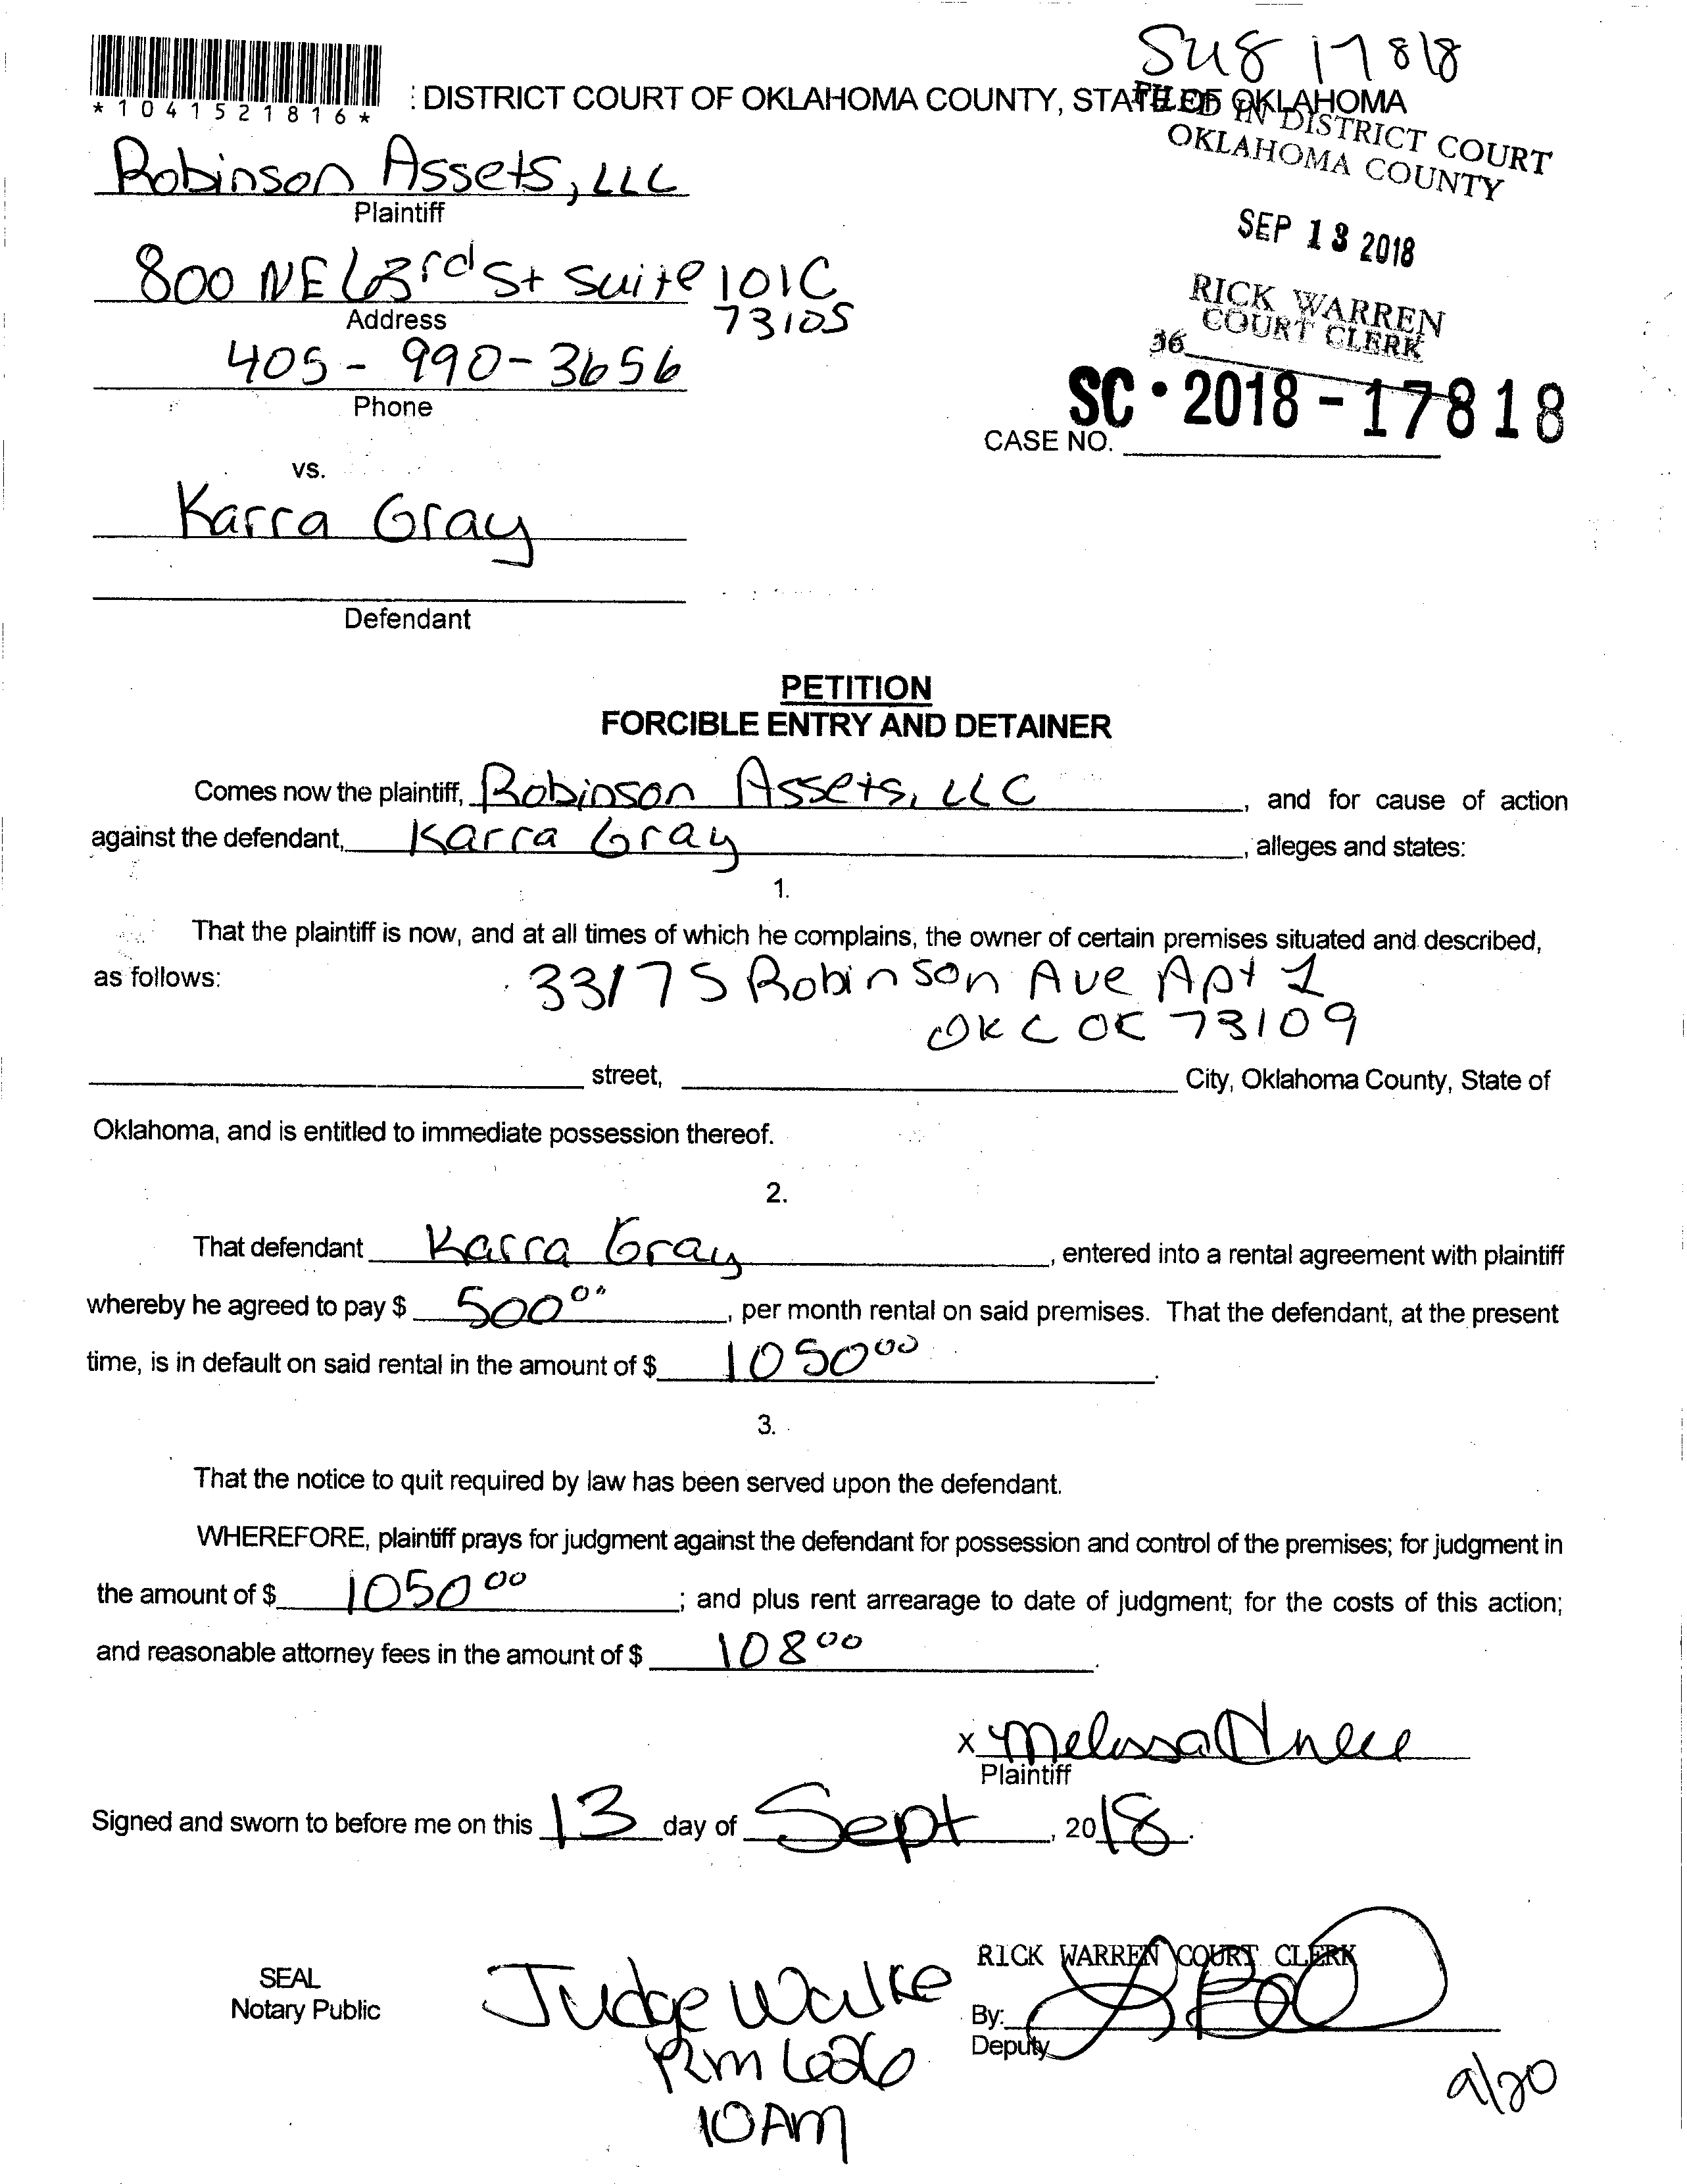 SUG 17818
*1041521816*
: DISTRICT COURT OF OKLAHOMA COUNTY, STATE OF OKLAHOMA
FILED IN DISTRICT COURT
OKLAHOMA COUNTY
Robinson Assets, LLC
Plaintiff
SEP 13 2018
800 NE 63rd St Suite 101C
73105
Address
RICK WARREN
COURT CLERK
36
405-990-3656
Phone
SC-2018-17818
CASE NO.
vs.
Karra Gray
Defendant
PETITION
FORCIBLE ENTRY AND DETAINER
Comes now the plaintiff, Robinson Assets, LLC, and for cause of action
against the defendant, Karra Gray, alleges and states:
1.
That the plaintiff is now, and at all times of which he complains, the owner of certain premises situated and described,
as follows: 3317 S Robinson Ave Apt 1
OKC OK 73109
street, City, Oklahoma County, State of
Oklahoma, and is entitled to immediate possession thereof.
2.
That defendant Karra Gray, entered into a rental agreement with plaintiff
whereby he agreed to pay $ 500 00, per month rental on said premises. That the defendant, at the present
time, is in default on said rental in the amount of $ 1050 00.
3.
That the notice to quit required by law has been served upon the defendant.
WHEREFORE, plaintiff prays for judgment against the defendant for possession and control of the premises; for judgment in
the amount of $ 1050 00; and plus rent arrearage to date of judgment; for the costs of this action;
and reasonable attorney fees in the amount of $ 108 00.
x Melissa
Plaintiff
Signed and sworn to before me on this 13 day of Sept, 2018.
SEAL
Notary Public
Judge Walke
Rm 626
10AM
RICK WARREN COURT CLERK
By:
Deputy
9/20